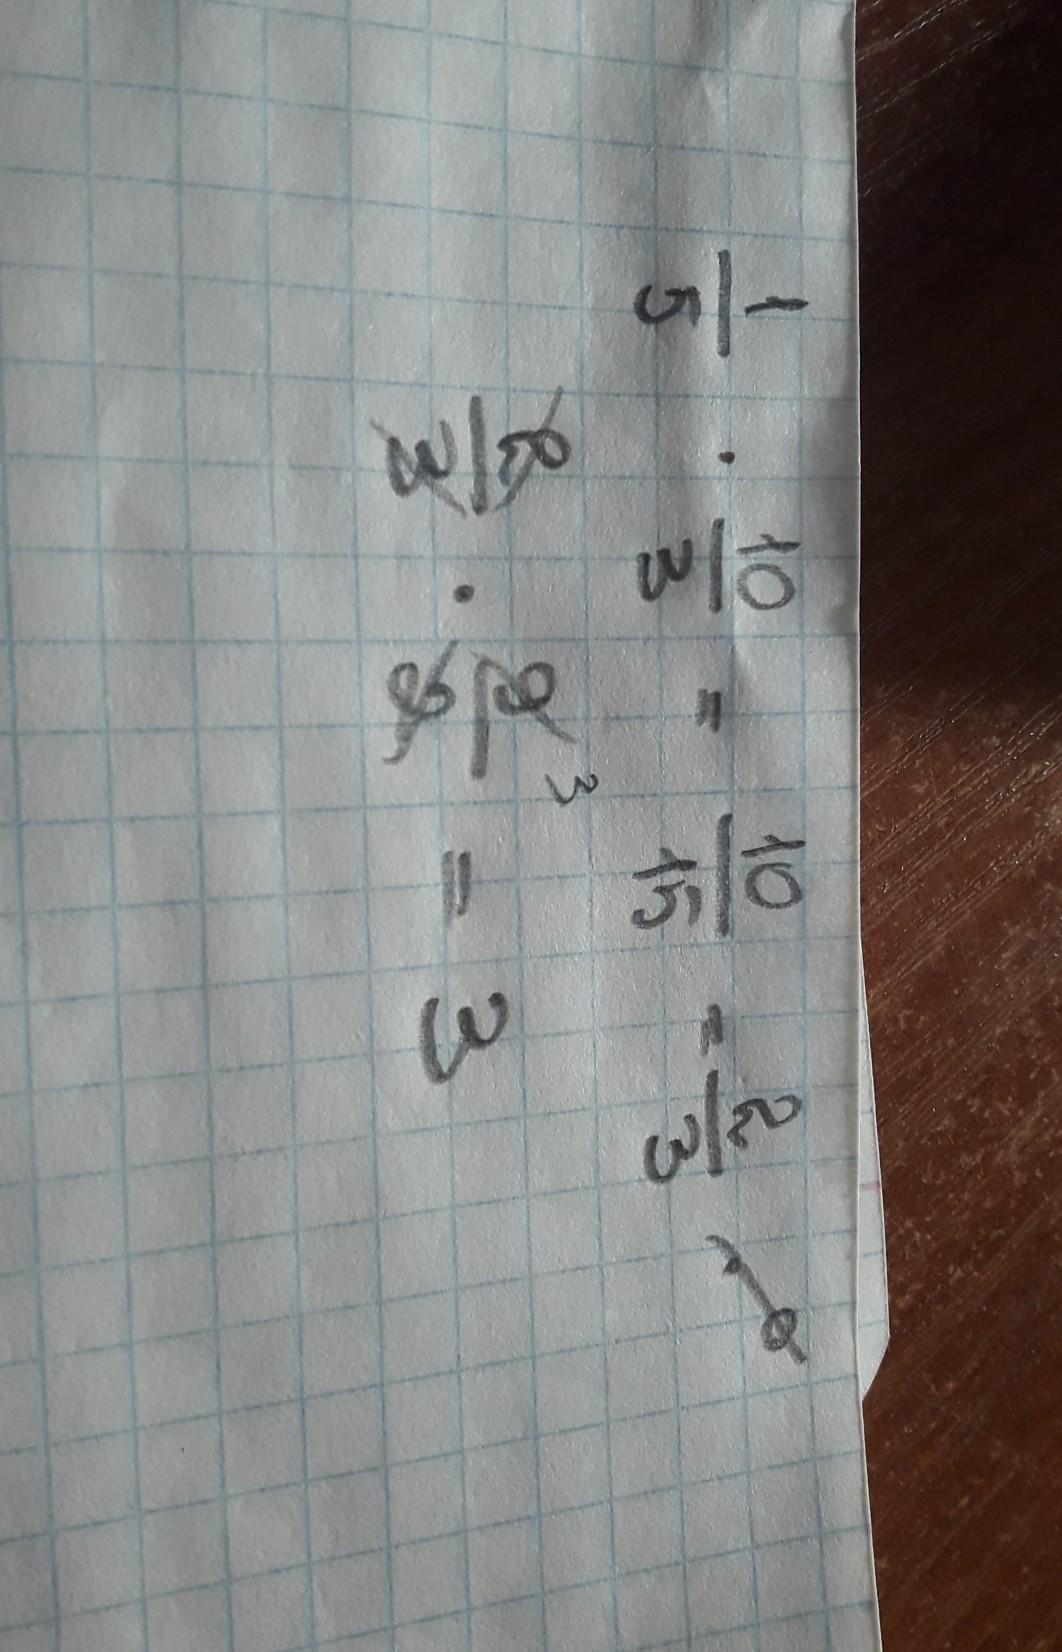 1/5 · 10/3 = 10/15 = 2/3
2/3 · 9/2 = 3